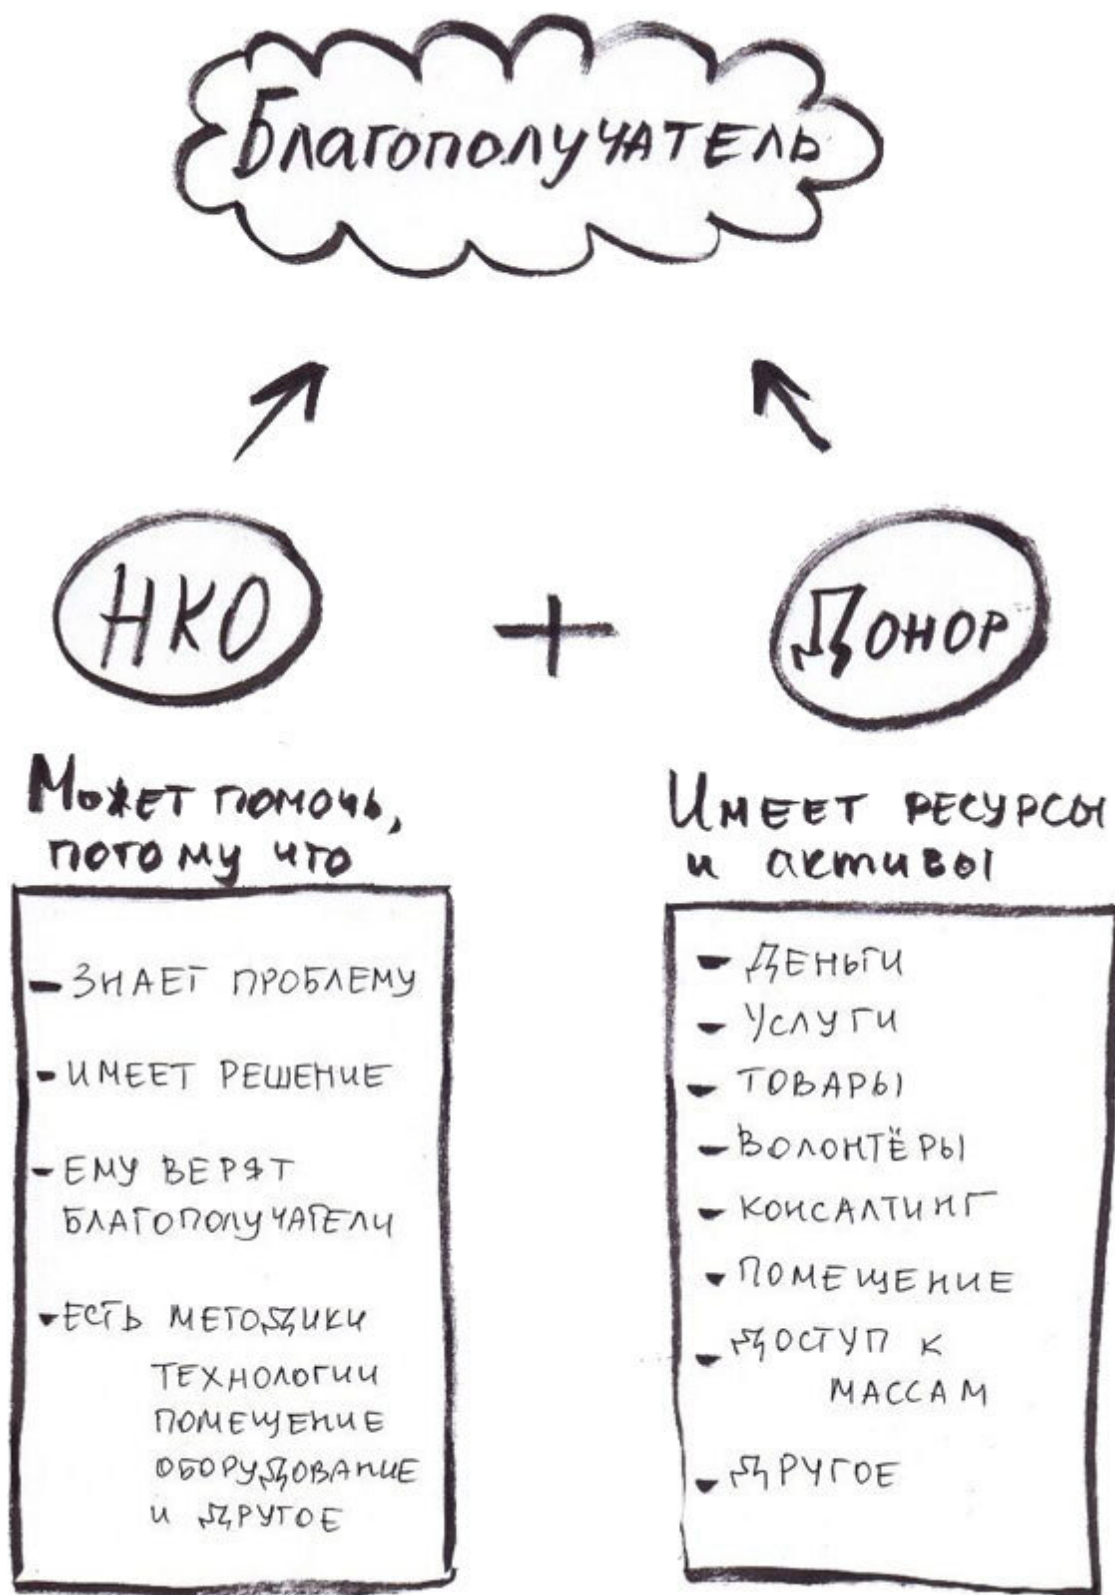 Благополучатель
НКО
+
Донор
Может помочь,
потому что
- ЗНАЕТ ПРОБЛЕМУ
- ИМЕЕТ РЕШЕНИЕ
- ЕМУ ВЕРЯТ
БЛАГОПОЛУЧАТЕЛИ
- ЕСТЬ МЕТОДИКИ
ТЕХНОЛОГИИ
ПОМЕЩЕНИЕ
ОБОРУДОВАНИЕ
И ДРУГОЕ
Имеет ресурсы
и активы
- ДЕНЬГИ
- УСЛУГИ
- ТОВАРЫ
- ВОЛОНТЁРЫ
- КОНСАЛТИНГ
- ПОМЕЩЕНИЕ
- ДОСТУП К
МАССАМ
- ДРУГОЕ